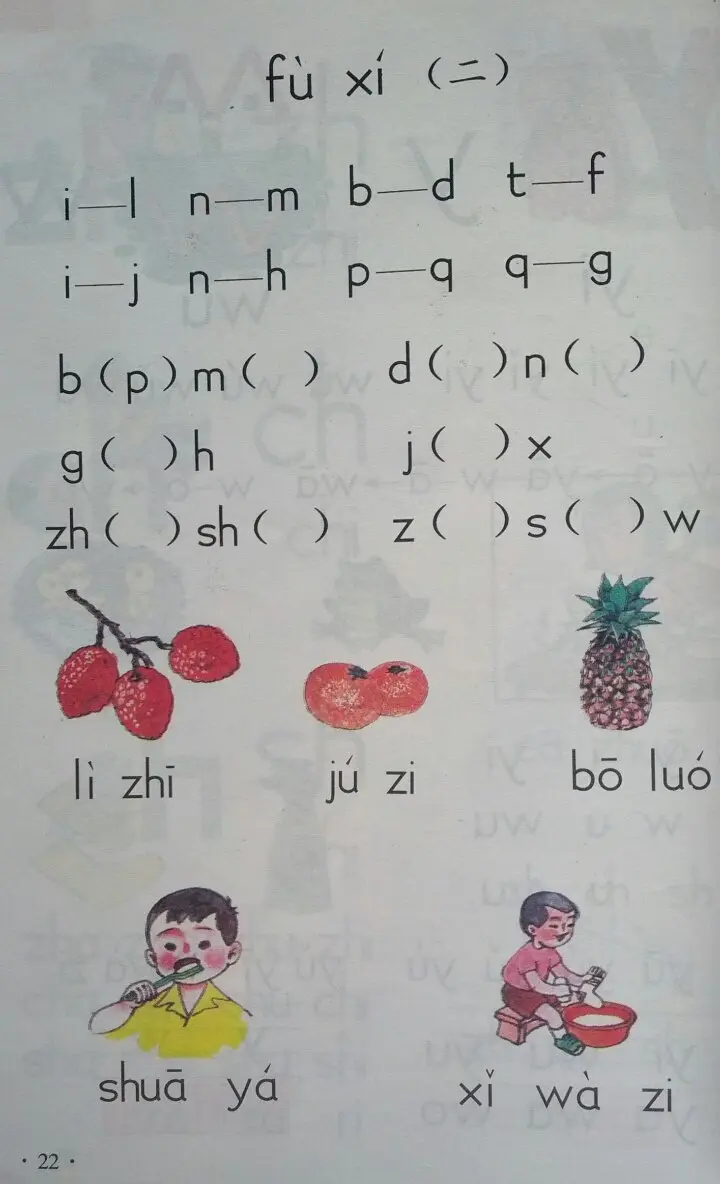 fù xí（二）
i—l n—m b—d t—f
i—j n—h p—q q—g
b（p）m（ ） d（ ）n（ ）
g（ ）h j（ ）x
zh（ ）sh（ ） z（ ）s（ ）w
lì zhī jú zi bō luó
shuā yá xǐ wà zi
·22·